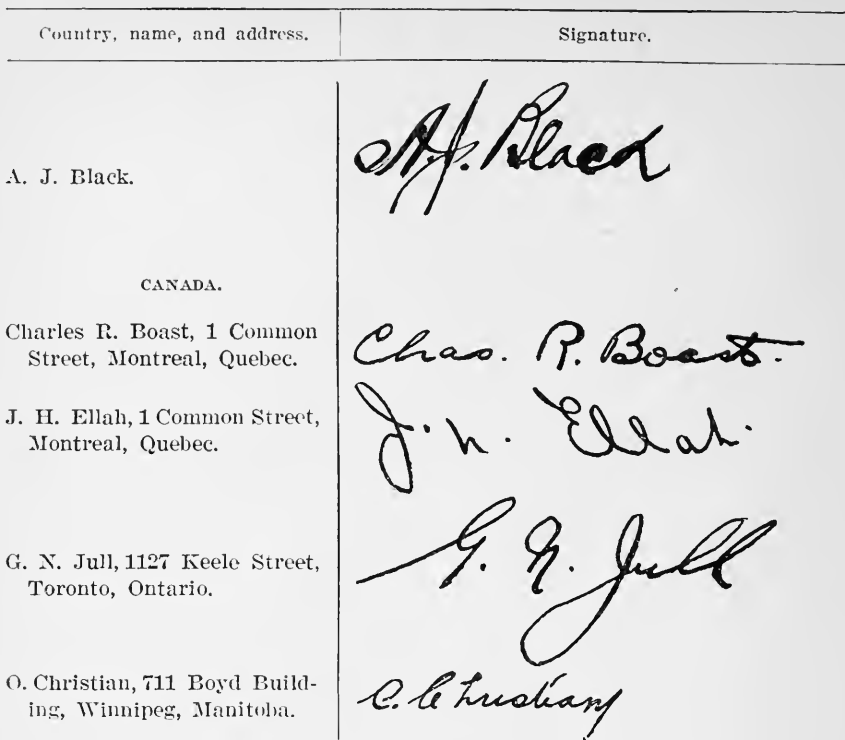 Country, name, and address. Signature.
A. J. Black. A. J. Black
CANADA.
Charles R. Boast, 1 Common
Street, Montreal, Quebec. Chas. R. Boast.
J. H. Ellah, 1 Common Street,
Montreal, Quebec. J. h. Ellah.
G. N. Jull, 1127 Keele Street,
Toronto, Ontario. G. N. Jull
O. Christian, 711 Boyd Build-
ing, Winnipeg, Manitoba. O. Christian